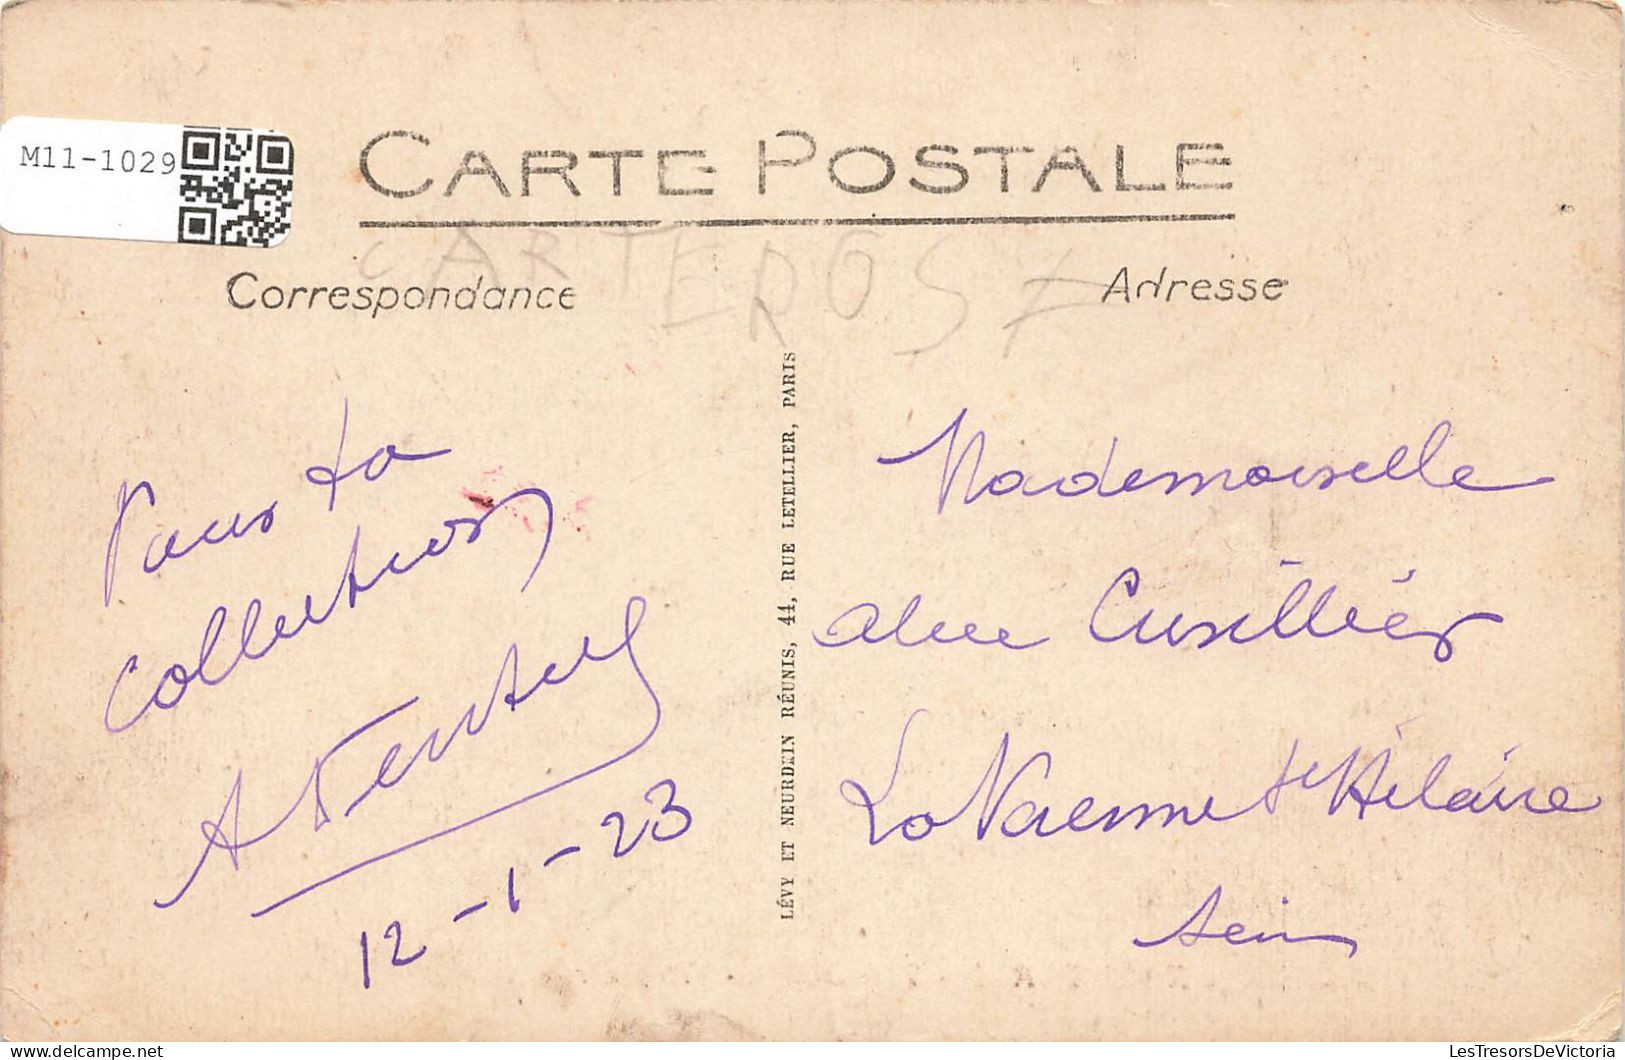 M11-1029
CARTE POSTALE
CARTEROS
Correspondance
Adresse
Pour la
collection
12-1-23
LÉVY ET NEURDEIN RÉUNIS, 44, RUE LETELLIER, PARIS
Mademoiselle
Alice Cuvillier
La Varenne St Hilaire
Seine
LesTresorsDeVictoria